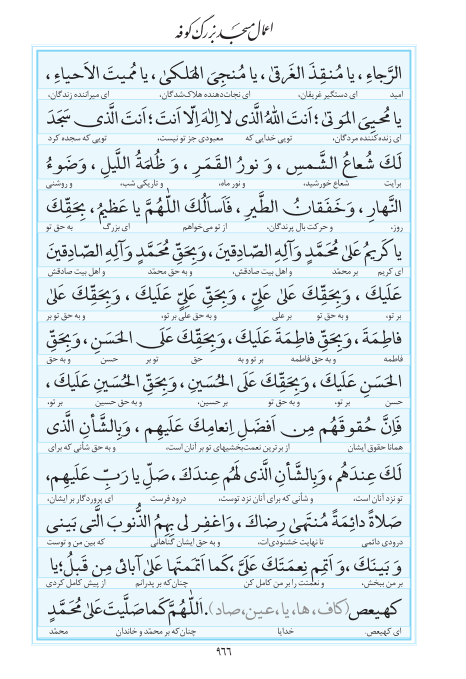 اعمال مسجد بزرگ کوفه
الرَّجاءِ، یا مُنقِذَ الغَرقیٰ، یا مُنجِیَ الهَلکیٰ، یا مُمیتَ الاَحیاءِ،
امید ای دستگیر غریقان، ای نجات‌دهنده هلاک‌شدگان، ای میراننده زندگان،
یا مُحیِیَ المَوتیٰ؛ اَنتَ اللّٰهُ الَّذی لا اِلٰهَ اِلّا اَنتَ؛ اَنتَ الَّذی سَجَدَ
ای زنده‌کننده مردگان، تویی خدایی که معبودی جز تو نیست، تویی که سجده کرد
لَکَ شُعاعُ الشَّمسِ، وَ نورُ القَمَرِ، وَ ظُلمَةُ اللَّیلِ، وَضَوءُ
برایت شعاع خورشید، و نور ماه، و تاریکی شب، و روشنی
النَّهارِ، وَخَفَقانُ الطَّیرِ، فَاَسأَلُکَ اللّٰهُمَّ یا عَظیمُ، بِحَقِّکَ
روز، و حرکت بال پرندگان، از تو می‌خواهم ای بزرگ به حق تو
یا کَریمُ عَلیٰ مُحَمَّدٍ وَآلِهِ الصّادِقینَ، وَبِحَقِّ مُحَمَّدٍ وَآلِهِ الصّادِقینَ
ای کریم بر محمّد و اهل بیت صادقش، و به حق محمّد و اهل بیت صادقش
عَلَیکَ، وَبِحَقِّکَ عَلیٰ عَلِیٍّ، وَبِحَقِّ عَلِیٍّ عَلَیکَ، وَبِحَقِّکَ عَلیٰ
بر تو، و به حق تو بر علی و به حق علی بر تو، و به حق تو بر
فاطِمَةَ، وَبِحَقِّ فاطِمَةَ عَلَیکَ، وَبِحَقِّکَ عَلَی الحَسَنِ، وَبِحَقِّ
فاطمه و به حق فاطمه بر تو و به حق تو بر حسن و به حق
الحَسَنِ عَلَیکَ، وَبِحَقِّکَ عَلَی الحُسَینِ، وَبِحَقِّ الحُسَینِ عَلَیکَ،
حسن بر تو، و به حق تو بر حسین، و به حق حسین بر تو،
فَاِنَّ حُقوقَهُم مِن اَفضَلِ اِنعامِکَ عَلَیهِم، وَبِالشَّأنِ الَّذی
همانا حقوق ایشان از برترین نعمت‌بخشیهای تو بر آنان است، و به حق شأنی که برای
لَکَ عِندَهُم، وَبِالشَّأنِ الَّذی لَهُم عِندَکَ، صَلِّ یا رَبِّ عَلَیهِم،
تو نزد آنان است، و شأنی که برای آنان نزد توست، درود فرست ای پروردگار بر ایشان،
صَلاةً دائِمَةً مُنتَهیٰ رِضاکَ، وَاغفِر لی بِهِمُ الذُّنوبَ الَّتی بَینی
درودی دائمی تا نهایت خشنودی‌ات، و به حق ایشان گناهانی که بین من و توست
وَ بَینَکَ، وَ اَتمِم نِعمَتَکَ عَلَیَّ، کَما اَتمَمتَها عَلیٰ آبائی مِن قَبلُ؛ یا
بر من ببخش، و نعمتت را بر من کامل کن چنان‌که بر پدرانم از پیش کامل کردی
کهیعص (کاف، ها، یا، عین، صاد). اَللّٰهُمَّ کَما صَلَّیتَ عَلیٰ مُحَمَّدٍ
ای کهیعص. خدایا چنان‌که بر محمّد و خاندان محمّد
۹۶۶